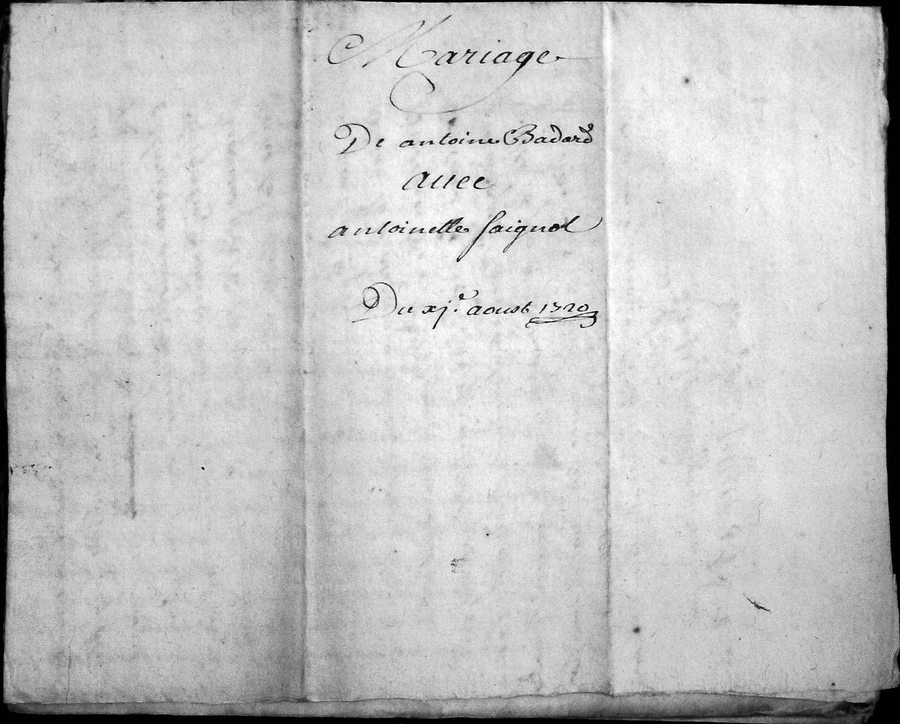 Mariage
De antoine Badard
auec
antoinette saignol
Du xj.e aoust 1720